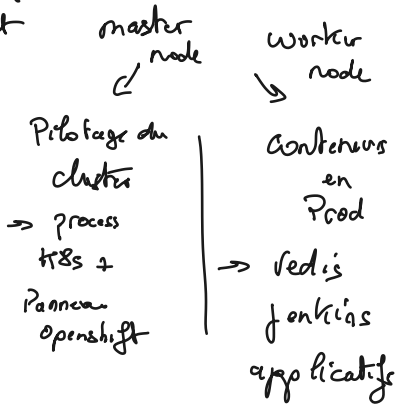 t
master
node
Pilotage du
cluster
→ process
K8s +
Panneau
openshift
worker
node
conteneurs
en
Prod
→ redis
jenkins
applicatifs